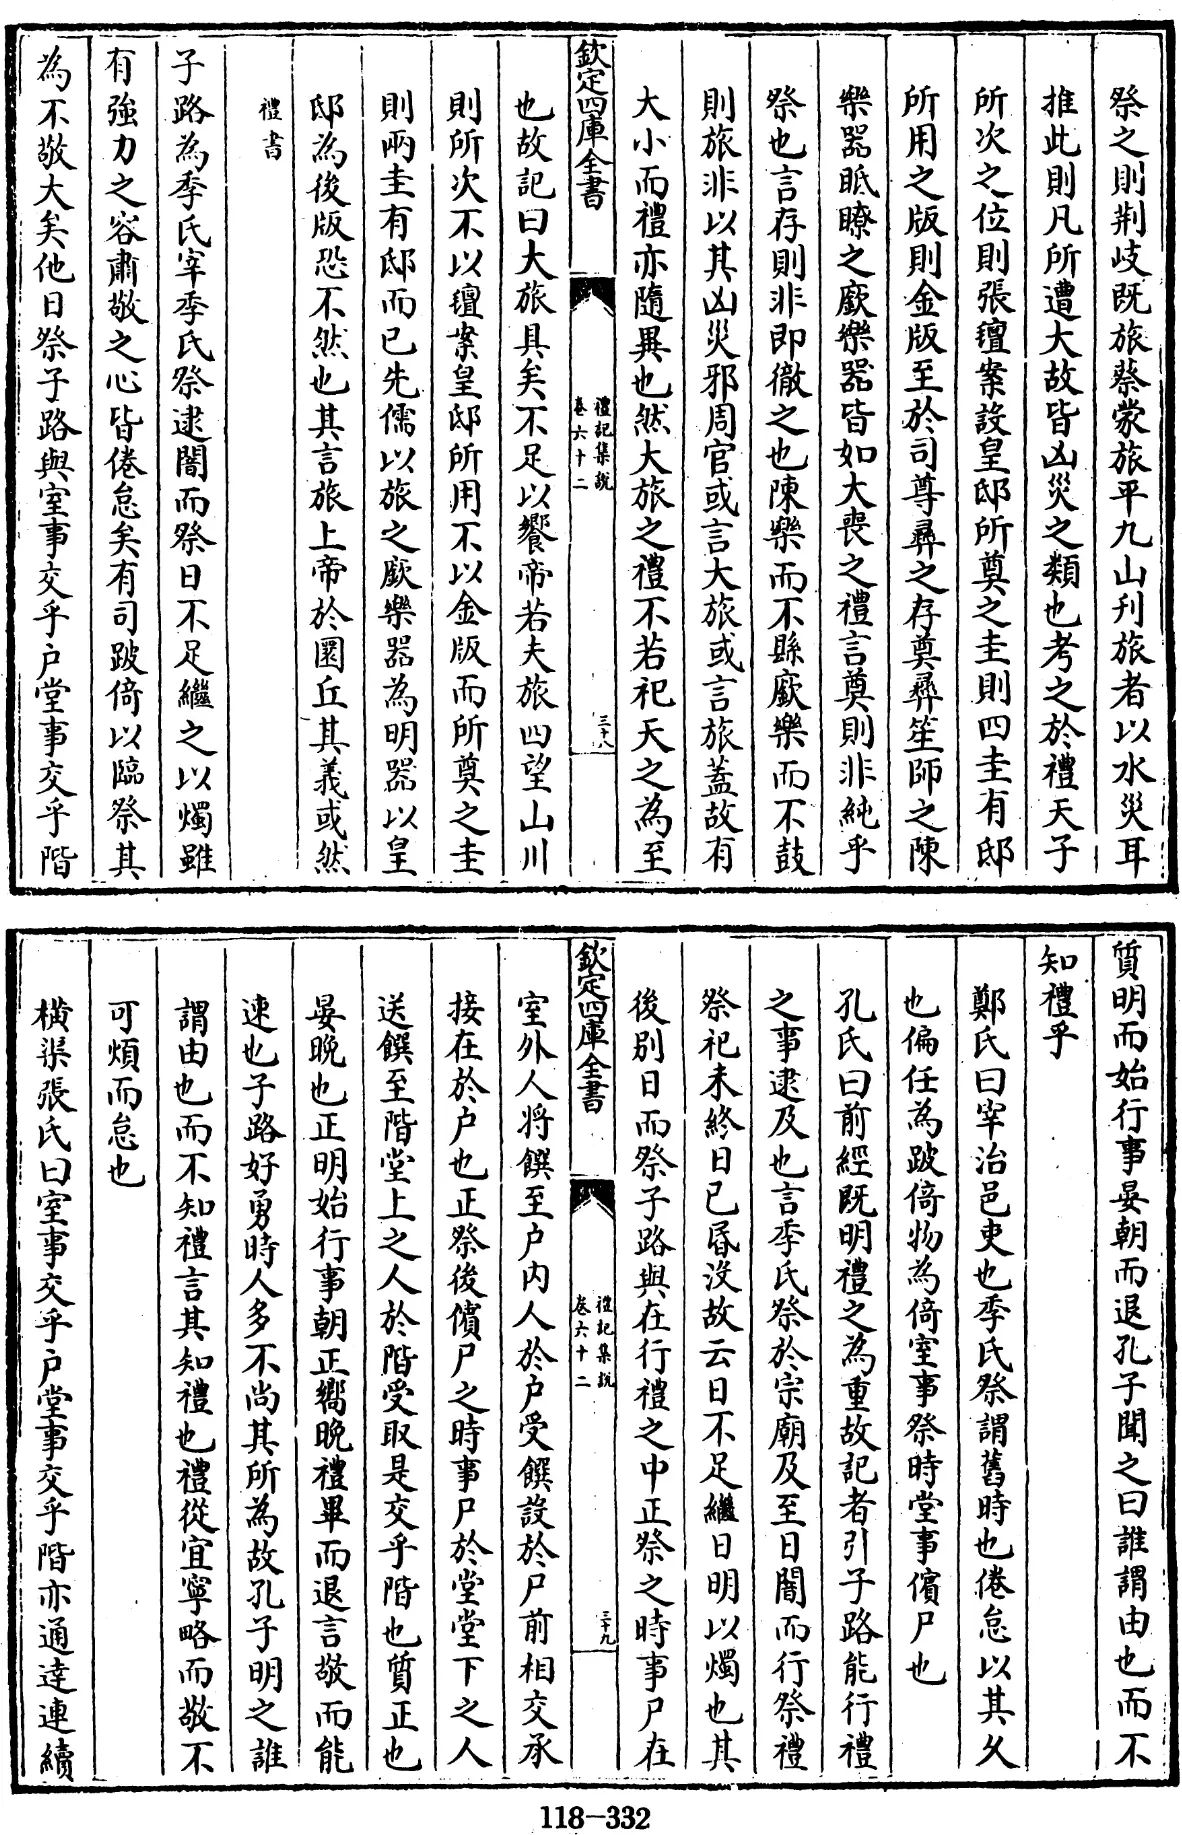 祭之則荆岐既旅蔡蒙旅平九山刋旅者以水災耳
推此則凡所遭大故皆凶災之類也考之於禮天子
所次之位則張氊案設皇邸所奠之圭則四圭有邸
所用之版則金版至於司尊彛之存奠彛笙師之陳
樂器眡瞭之廞樂器皆如大喪之禮言奠則非純乎
祭也言存則非即徹之也陳樂而不縣廞樂而不鼓
則旅非以其凶災邪周官或言大旅或言旅蓋故有
大小而禮亦隨異也然大旅之禮不若祀天之為至
欽定四庫全書
禮記集說
卷六十二
三十八
也故記曰大旅具矣不足以饗帝若夫旅四望山川
則所次不以氊案皇邸所用不以金版而所奠之圭
則兩圭有邸而已先儒以旅之廞樂器為明器以皇
邸為後版恐不然也其言旅上帝於圜丘其義或然
禮書
子路為季氏宰季氏祭逮闇而祭日不足繼之以燭雖
有強力之容肅敬之心皆倦怠矣有司跛倚以臨祭其
為不敬大矣他日祭子路與室事交乎户堂事交乎階
質明而始行事晏朝而退孔子聞之曰誰謂由也而不
知禮乎
鄭氏曰宰治邑吏也季氏祭謂舊時也倦怠以其久
也偏任為跛倚物為倚室事祭時堂事儐尸也
孔氏曰前經既明禮之為重故記者引子路能行禮
之事逮及也言季氏祭於宗廟及至日闇而行祭禮
祭祀未終日已昏沒故云日不足繼日明以燭也其
後别日而祭子路與在行禮之中正祭之時事尸在
欽定四庫全書
禮記集說
卷六十二
三十九
室外人将饌至户内人於户受饌設於尸前相交承
接在於户也正祭後儐尸之時事尸於堂堂下之人
送饌至階堂上之人於階受取是交乎階也質正也
晏晚也正明始行事朝正嚮晚禮畢而退言敬而能
速也子路好勇時人多不尚其所為故孔子明之誰
謂由也而不知禮言其知禮也禮從宜寧略而敬不
可煩而怠也
橫渠張氏曰室事交乎户堂事交乎階亦通達連續
118-332